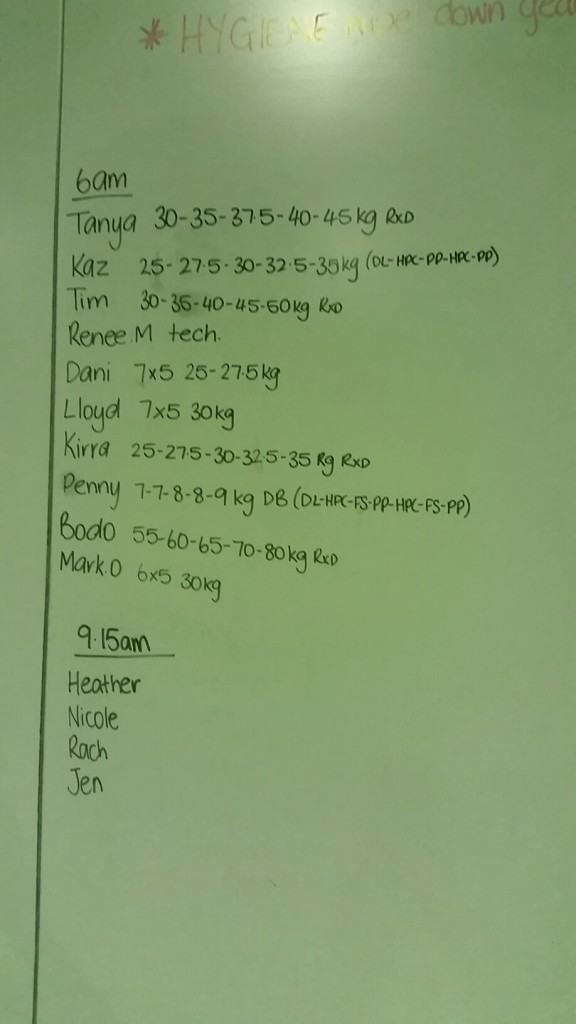 * HYGIENE wipe down gea
6am
Tanya 30-35-37.5-40-45kg RxD
Kaz 25-27.5-30-32.5-35kg (DL-HPC-PP-HPC-PP)
Tim 30-35-40-45-50kg RxD
Renee.M tech.
Dani 7x5 25-27.5kg
Lloyd 7x5 30kg
Kirra 25-27.5-30-32.5-35 kg RxD
Penny 7-7-8-8-9kg DB (DL-HPC-FS-PP-HPC-FS-PP)
Bodo 55-60-65-70-80kg RxD
Mark.O 6x5 30kg
9.15am
Heather
Nicole
Rach
Jen